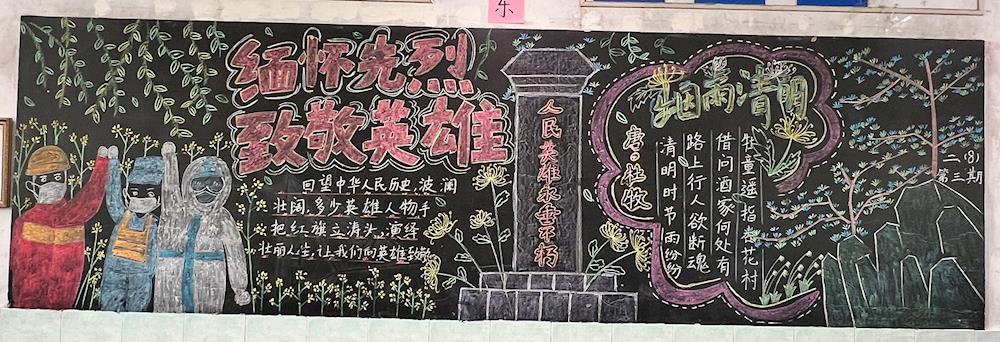 乐
缅怀先烈
致敬英雄
回望中华人民历史,波澜
壮阔,多少英雄人物手
把红旗立涛头,演绎
壮丽人生,让我们向英雄致敬
人民英雄永垂不朽
烟雨清明
唐·杜牧
清明时节雨纷纷
路上行人欲断魂
借问酒家何处有
牧童遥指杏花村
二(8)
第三期